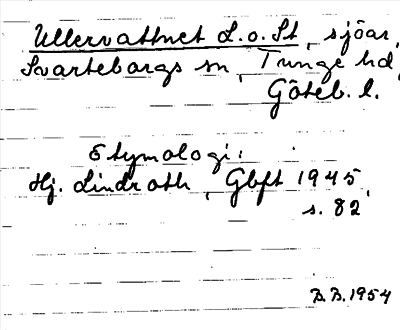 Ullervattnet L. o. St, sjöar,
Svarteborgs sn, Tunge hd,
Göteb. l.
Etymologi:
Hj. Lindroth, Gbft 1945,
s. 82
B.B. 1954